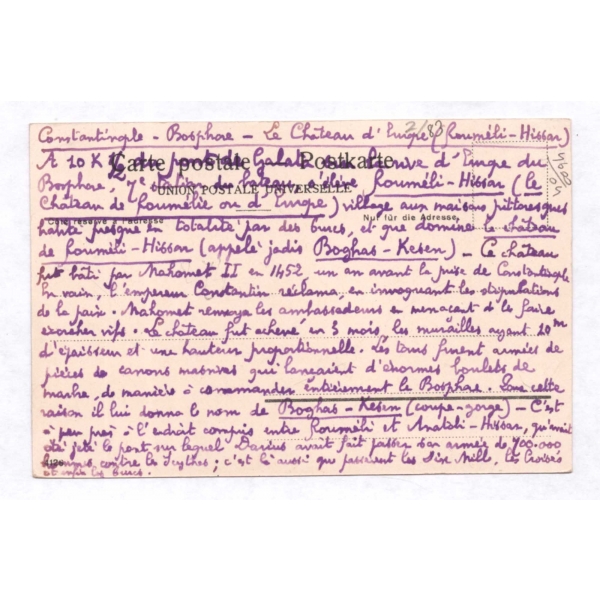 2/83
Constantinople - Bosphore - Le Château d'Europe (Rouméli-Hissar)
A 10 K du pont de Galata, la rive d'Europe du
Carte postale — Postkarte
Bosphore, 
UNION POSTALE UNIVERSELLE
Rouméli-Hissar (le
Château de Roumélie ou d'Europe) village aux maisons pittoresques
Côté réservé à l'adresse
Nur für die Adresse
habité presque en totalité par des turcs, et que domine le château
de Rouméli-Hissar (appelé jadis Boghas-Kesen) - Ce château
fut bâti par Mahomet II en 1452 un an avant la prise de Constantinople
En vain, l'empereur Constantin réclama, en invoquant les stipulations
de la paix. Mahomet renvoya les ambassadeurs en menaçant de les faire
écorcher vifs. Le château fut achevé en 3 mois, les murailles ayant 20m
d'épaisseur et une hauteur proportionnelle. Les tours furent armées de
pièces de canons massives qui lançaient d'énormes boulets de
marbre, de manière à commander entièrement le Bosphore. Pour cette
raison il lui donna le nom de Boghas-Kesen (coupe-gorge) - C'est
à peu près à l'endroit compris entre Rouméli et Anatoli-Hissar, qu'avait
été jeté le pont sur lequel Darius avait fait passer son armée de 700.000
hommes contre les Scythes; c'est là aussi que passèrent les Dix Mille, les Croisés
et enfin les turcs.